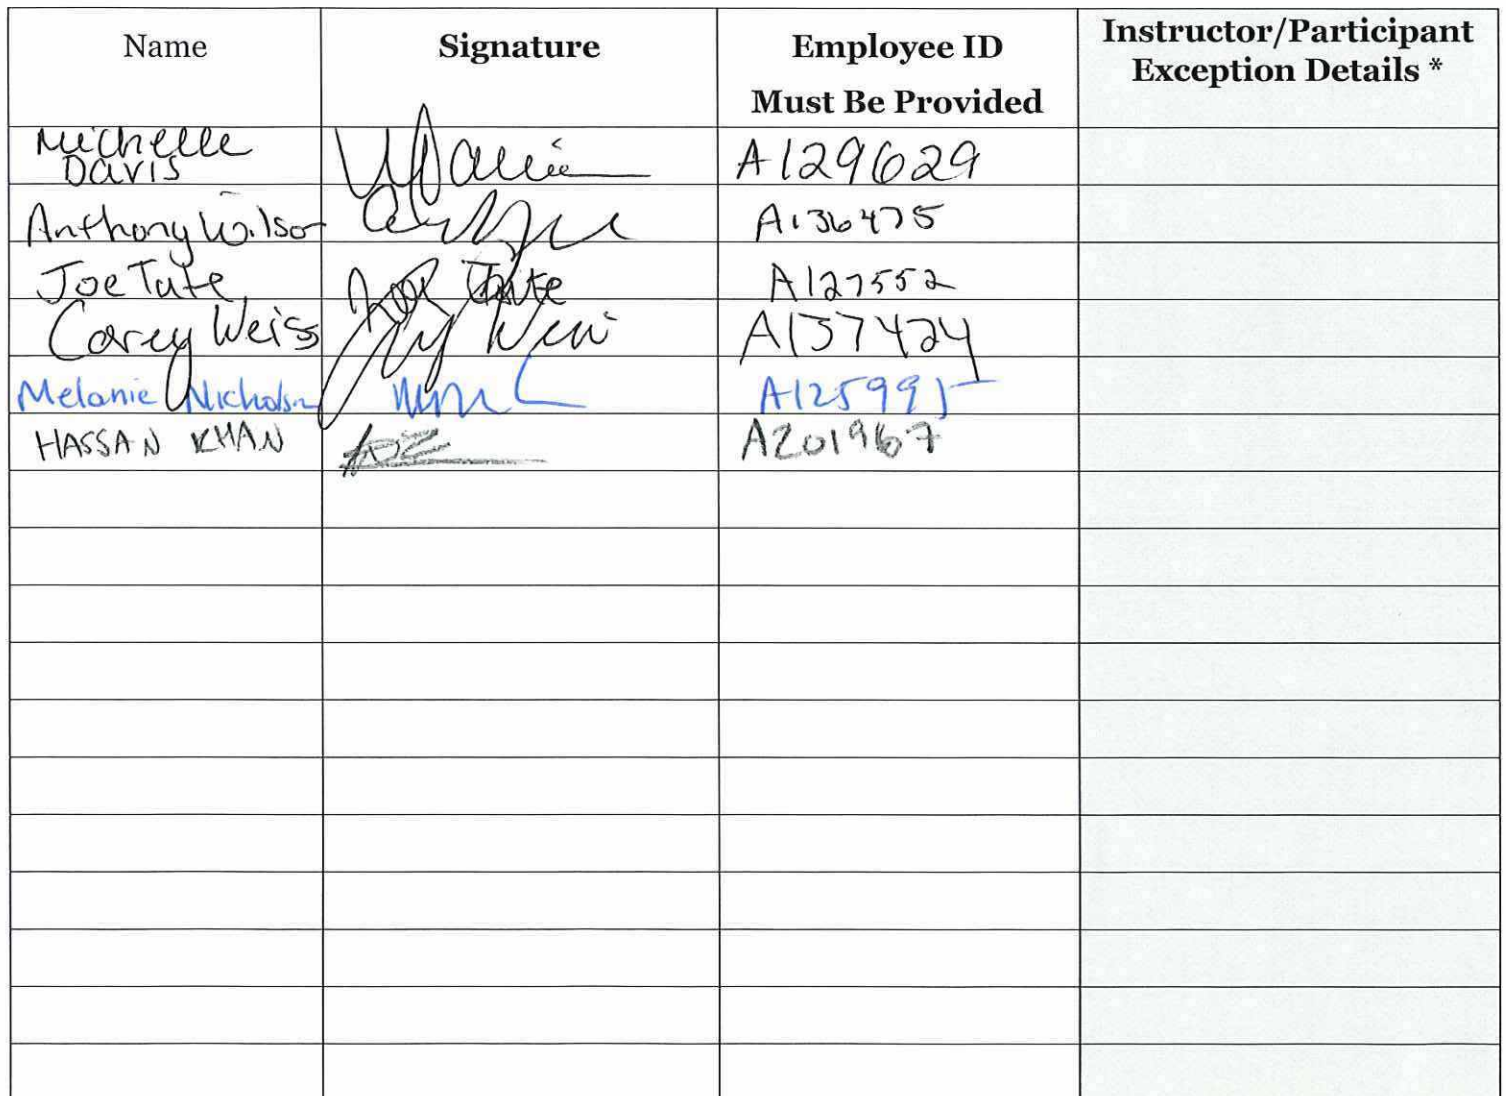 Name Signature Employee ID Must Be Provided Instructor/Participant Exception Details *
Michelle Davis A129629
Anthony Wilson A136475
Joe Tate Joe Tate A127552
Carey Weiss A137424
Melanie Nicholson A125995
HASSAN KHAN A201967